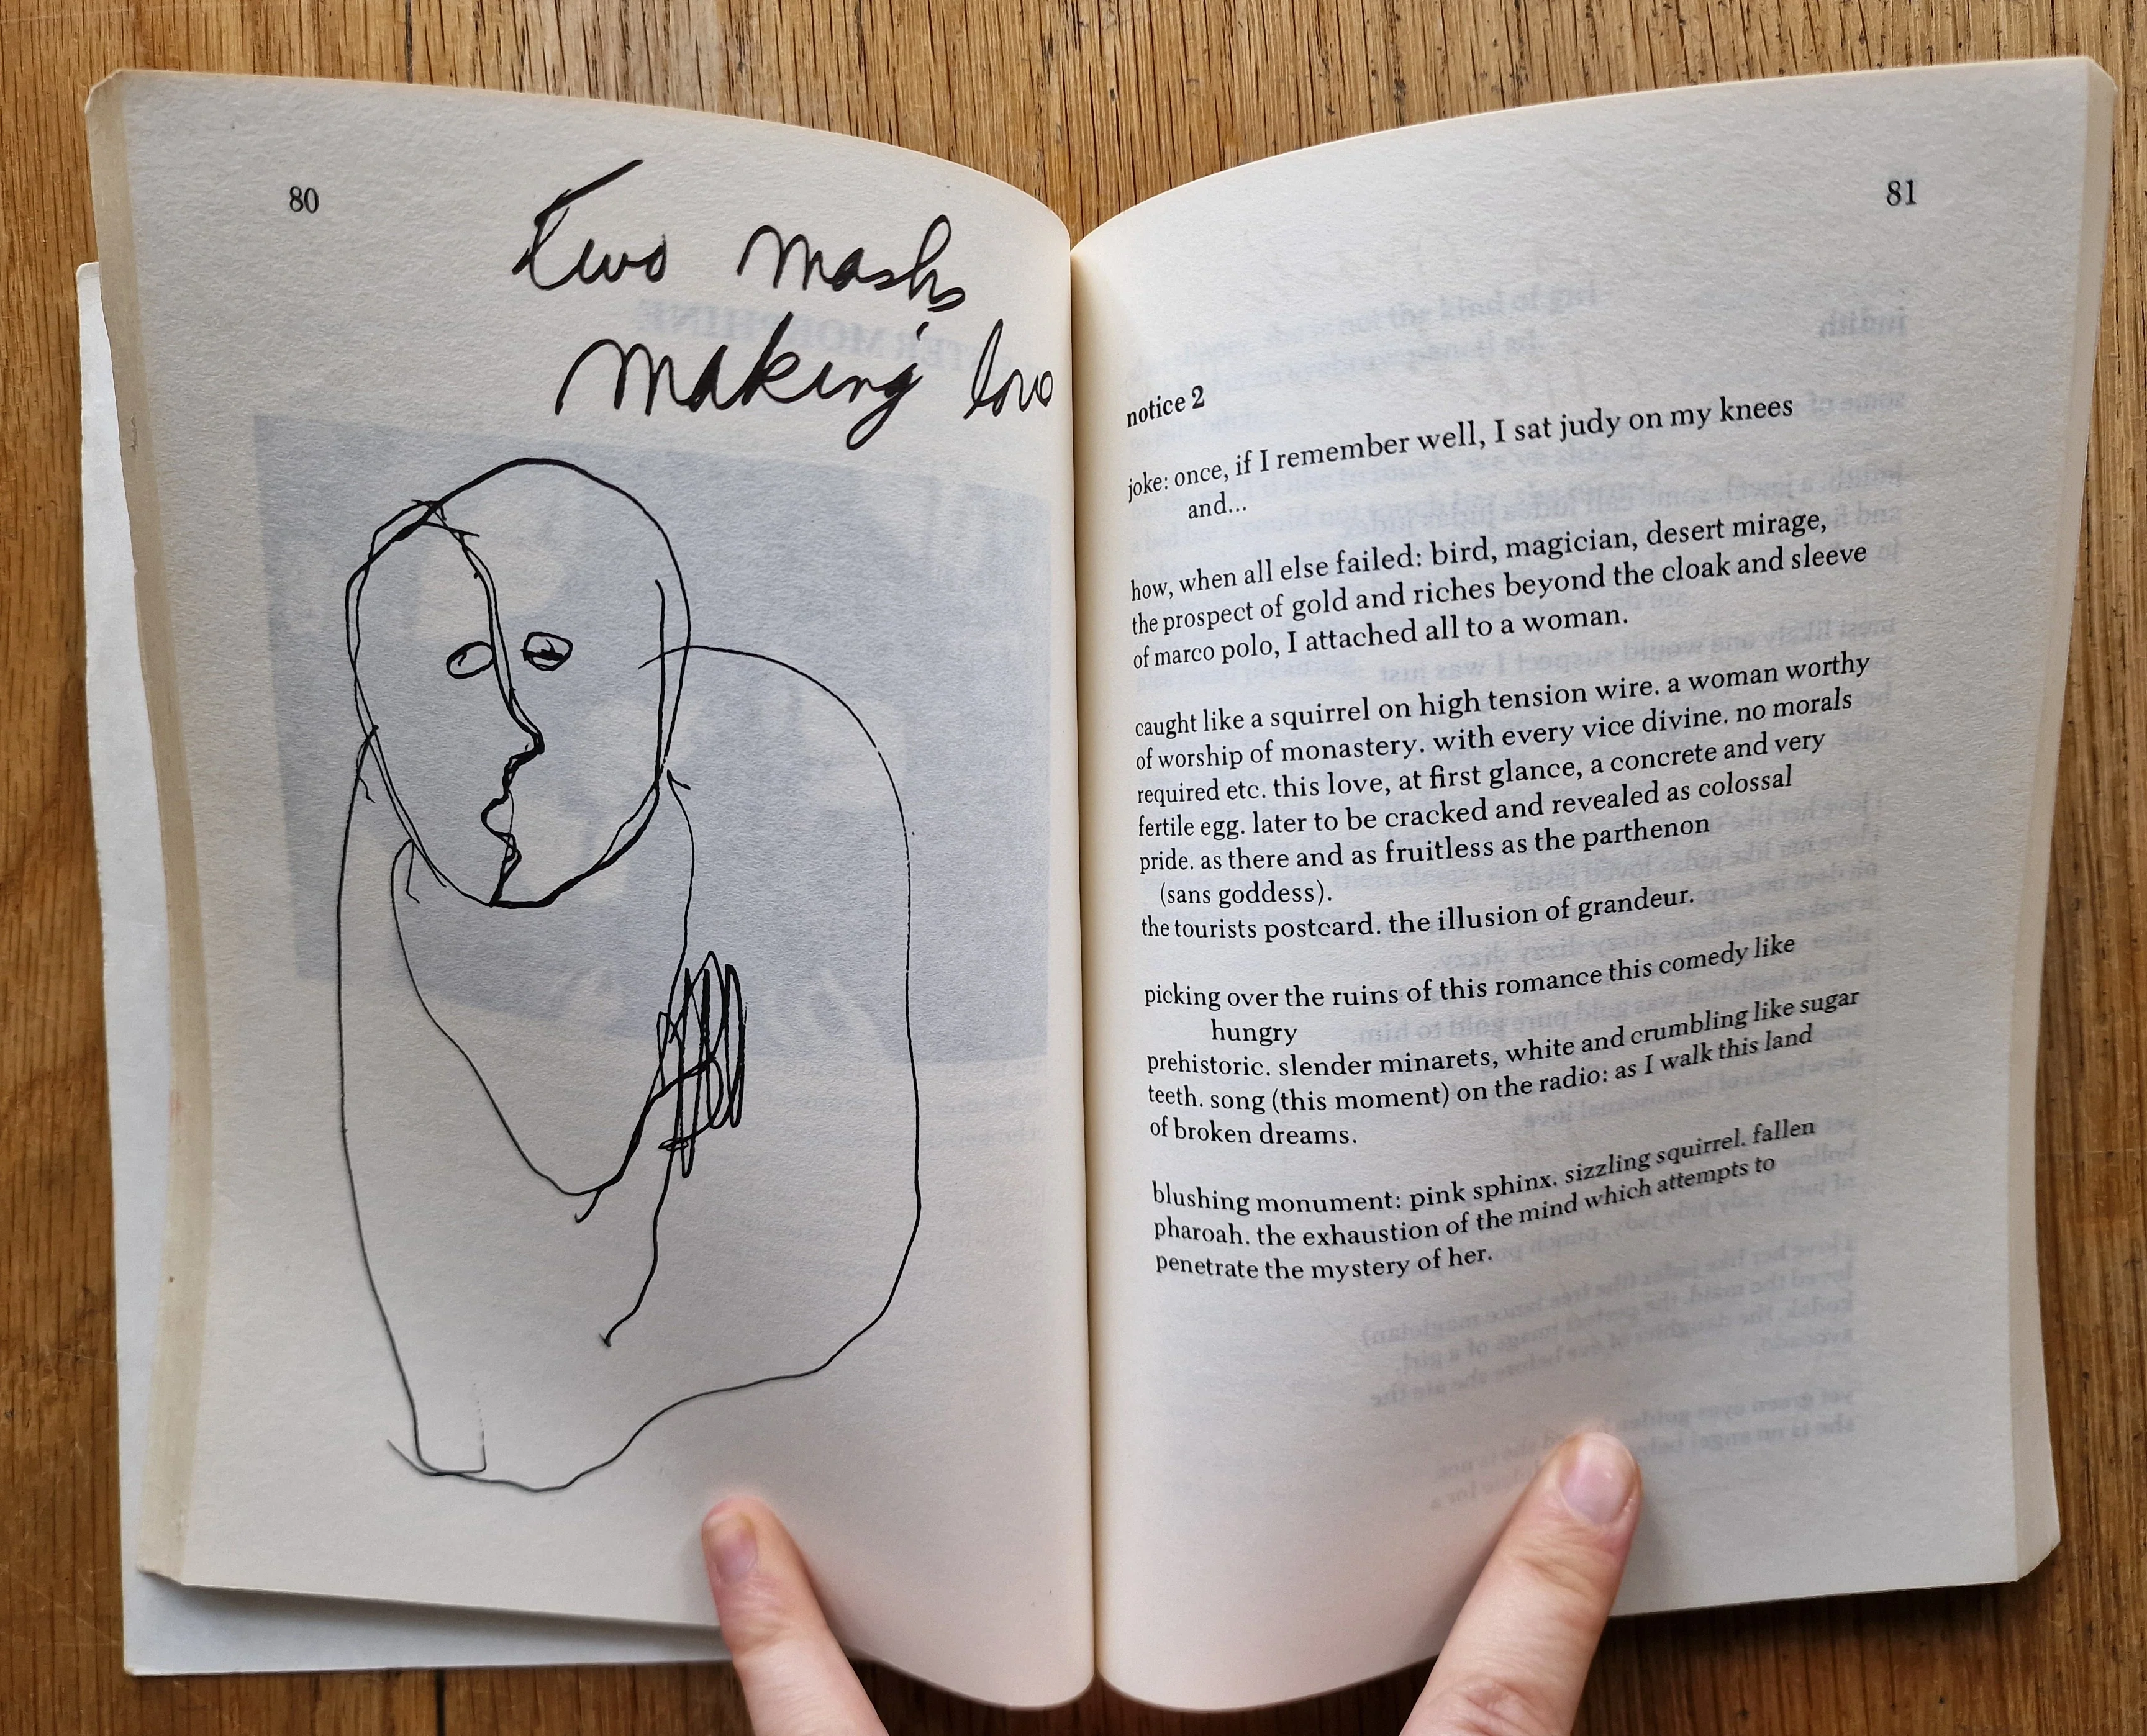 80
Two masks
making love
81
notice 2
joke: once, if I remember well, I sat judy on my knees
and...
how, when all else failed: bird, magician, desert mirage,
the prospect of gold and riches beyond the cloak and sleeve
of marco polo, I attached all to a woman.
caught like a squirrel on high tension wire. a woman worthy
of worship of monastery. with every vice divine. no morals
required etc. this love, at first glance, a concrete and very
fertile egg. later to be cracked and revealed as colossal
pride. as there and as fruitless as the parthenon
(sans goddess).
the tourists postcard. the illusion of grandeur.
picking over the ruins of this romance this comedy like
hungry
prehistoric. slender minarets, white and crumbling like sugar
teeth. song (this moment) on the radio: as I walk this land
of broken dreams.
blushing monument: pink sphinx. sizzling squirrel. fallen
pharoah. the exhaustion of the mind which attempts to
penetrate the mystery of her.